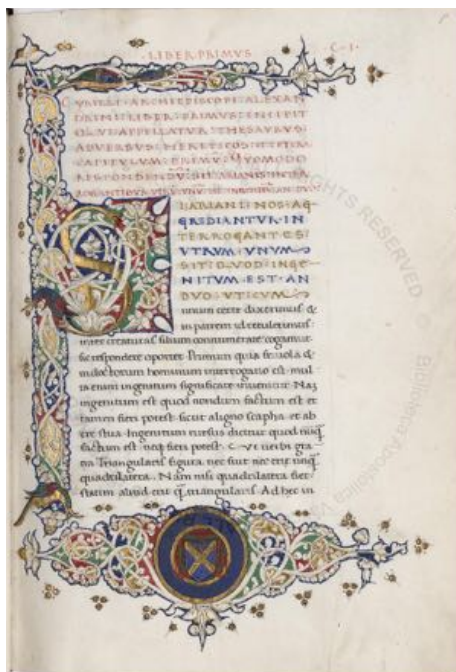 ·LIBER PRIMVS
·C·I·
CYRILLI·ARCHIEPISCOPI·ALEXAN
DRINI·LIBER·PRIMVS·INCIPIT
QVI·APPELLATVR·THESAVRVS·
ADVERSVS·HERETICOS·
CAPITVLVM·PRIMV̄·QVOMODO
RESPONDENDV̄·SIT·ARIANIS·INTER
ARIANI·NOS·AG
GREDIANTVR·IN
TERROGANTES·
VTRVM·VNVM
SIT·QVOD·INGE
NITVM·EST·AN
DVO·VTI·CVM
unum certe dixerimus &
in patrem id retulerimus
inter creaturas filium connumerare cogamur
sic respondere oportet. Primum quia friuola &
indoctorum hominum interrogatio est. mul
ta enim ingenitum significare inuenitur. Nam
ingenitum est quod nondum factum est et
tamen fieri potest. sicut aligno scapha et ab
ere stua. Ingenitum rursus dicitur quod
factum est fieri potest. C Vt uerbi gra
tia Triangularis figura nec fuit nec erit unq̄
quadrilatera. Nam nisi quadrilatera fiet
statim aliud erit q̄ triangularis. Ad hec in
RIGHTS RESERVED
©
Biblioteca Apostolica